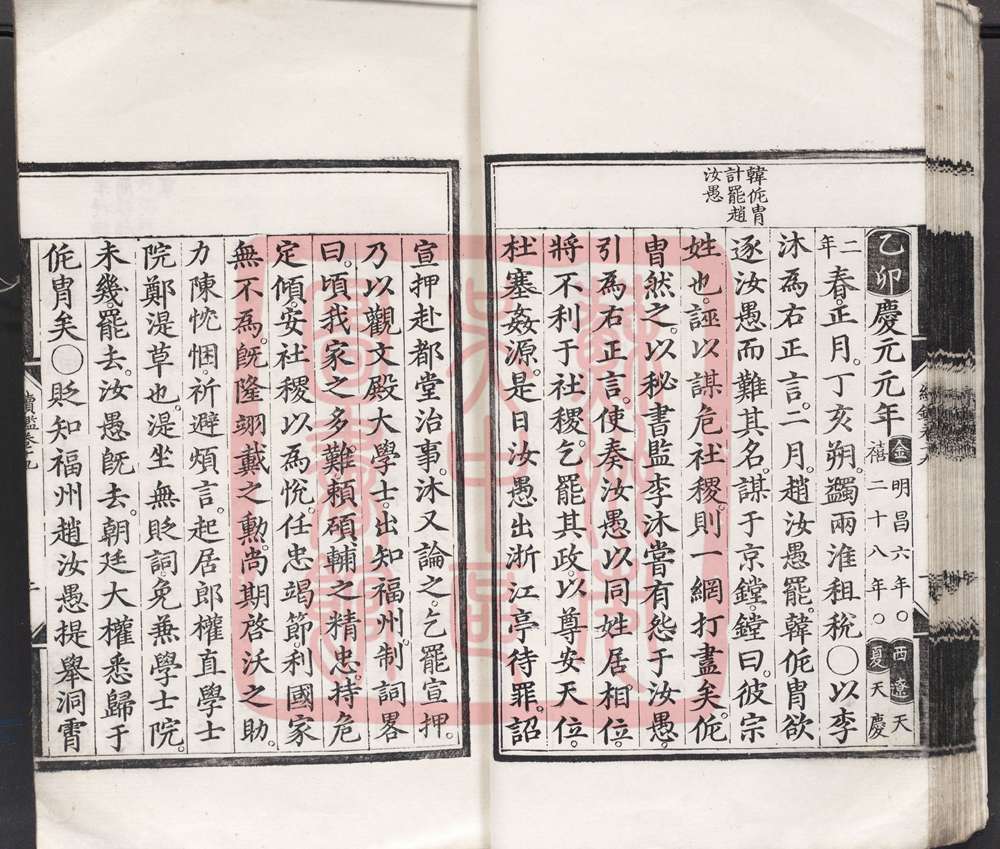 韓侂冑
計罷趙
汝愚
乙卯慶元元年金明昌六年〇西遼天
禧二十八年〇夏天慶
二年春。正月。丁亥朔。蠲兩淮租稅〇以李
沐為右正言。二月。趙汝愚罷。韓侂冑欲
逐汝愚而難其名。謀于京鏜。鏜曰。彼宗
姓也。誣以謀危社稷。則一網打盡矣。侂
冑然之。以秘書監李沐嘗有怨于汝愚。
引為右正言。使奏汝愚以同姓居相位。
將不利于社稷。乞罷其政。以尊安天位。
杜塞姦源。是日汝愚出浙江亭待罪。詔
宣押赴都堂治事。沐又論之。乞罷宣押。
乃以觀文殿大學士。出知福州。制詞畧
曰。頃我家之多難。賴碩輔之精忠。持危
定傾。安社稷以為悅。任忠竭節。利國家
無不為。旣隆翊戴之勳。尚期啓沃之助。
力陳忱悃。祈避煩言。起居郎權直學士
院鄭湜草也。湜坐無貶詞。免兼學士院。
未幾。罷去。汝愚旣去。朝廷大權悉歸于
侂冑矣〇貶知福州趙汝愚提舉洞霄